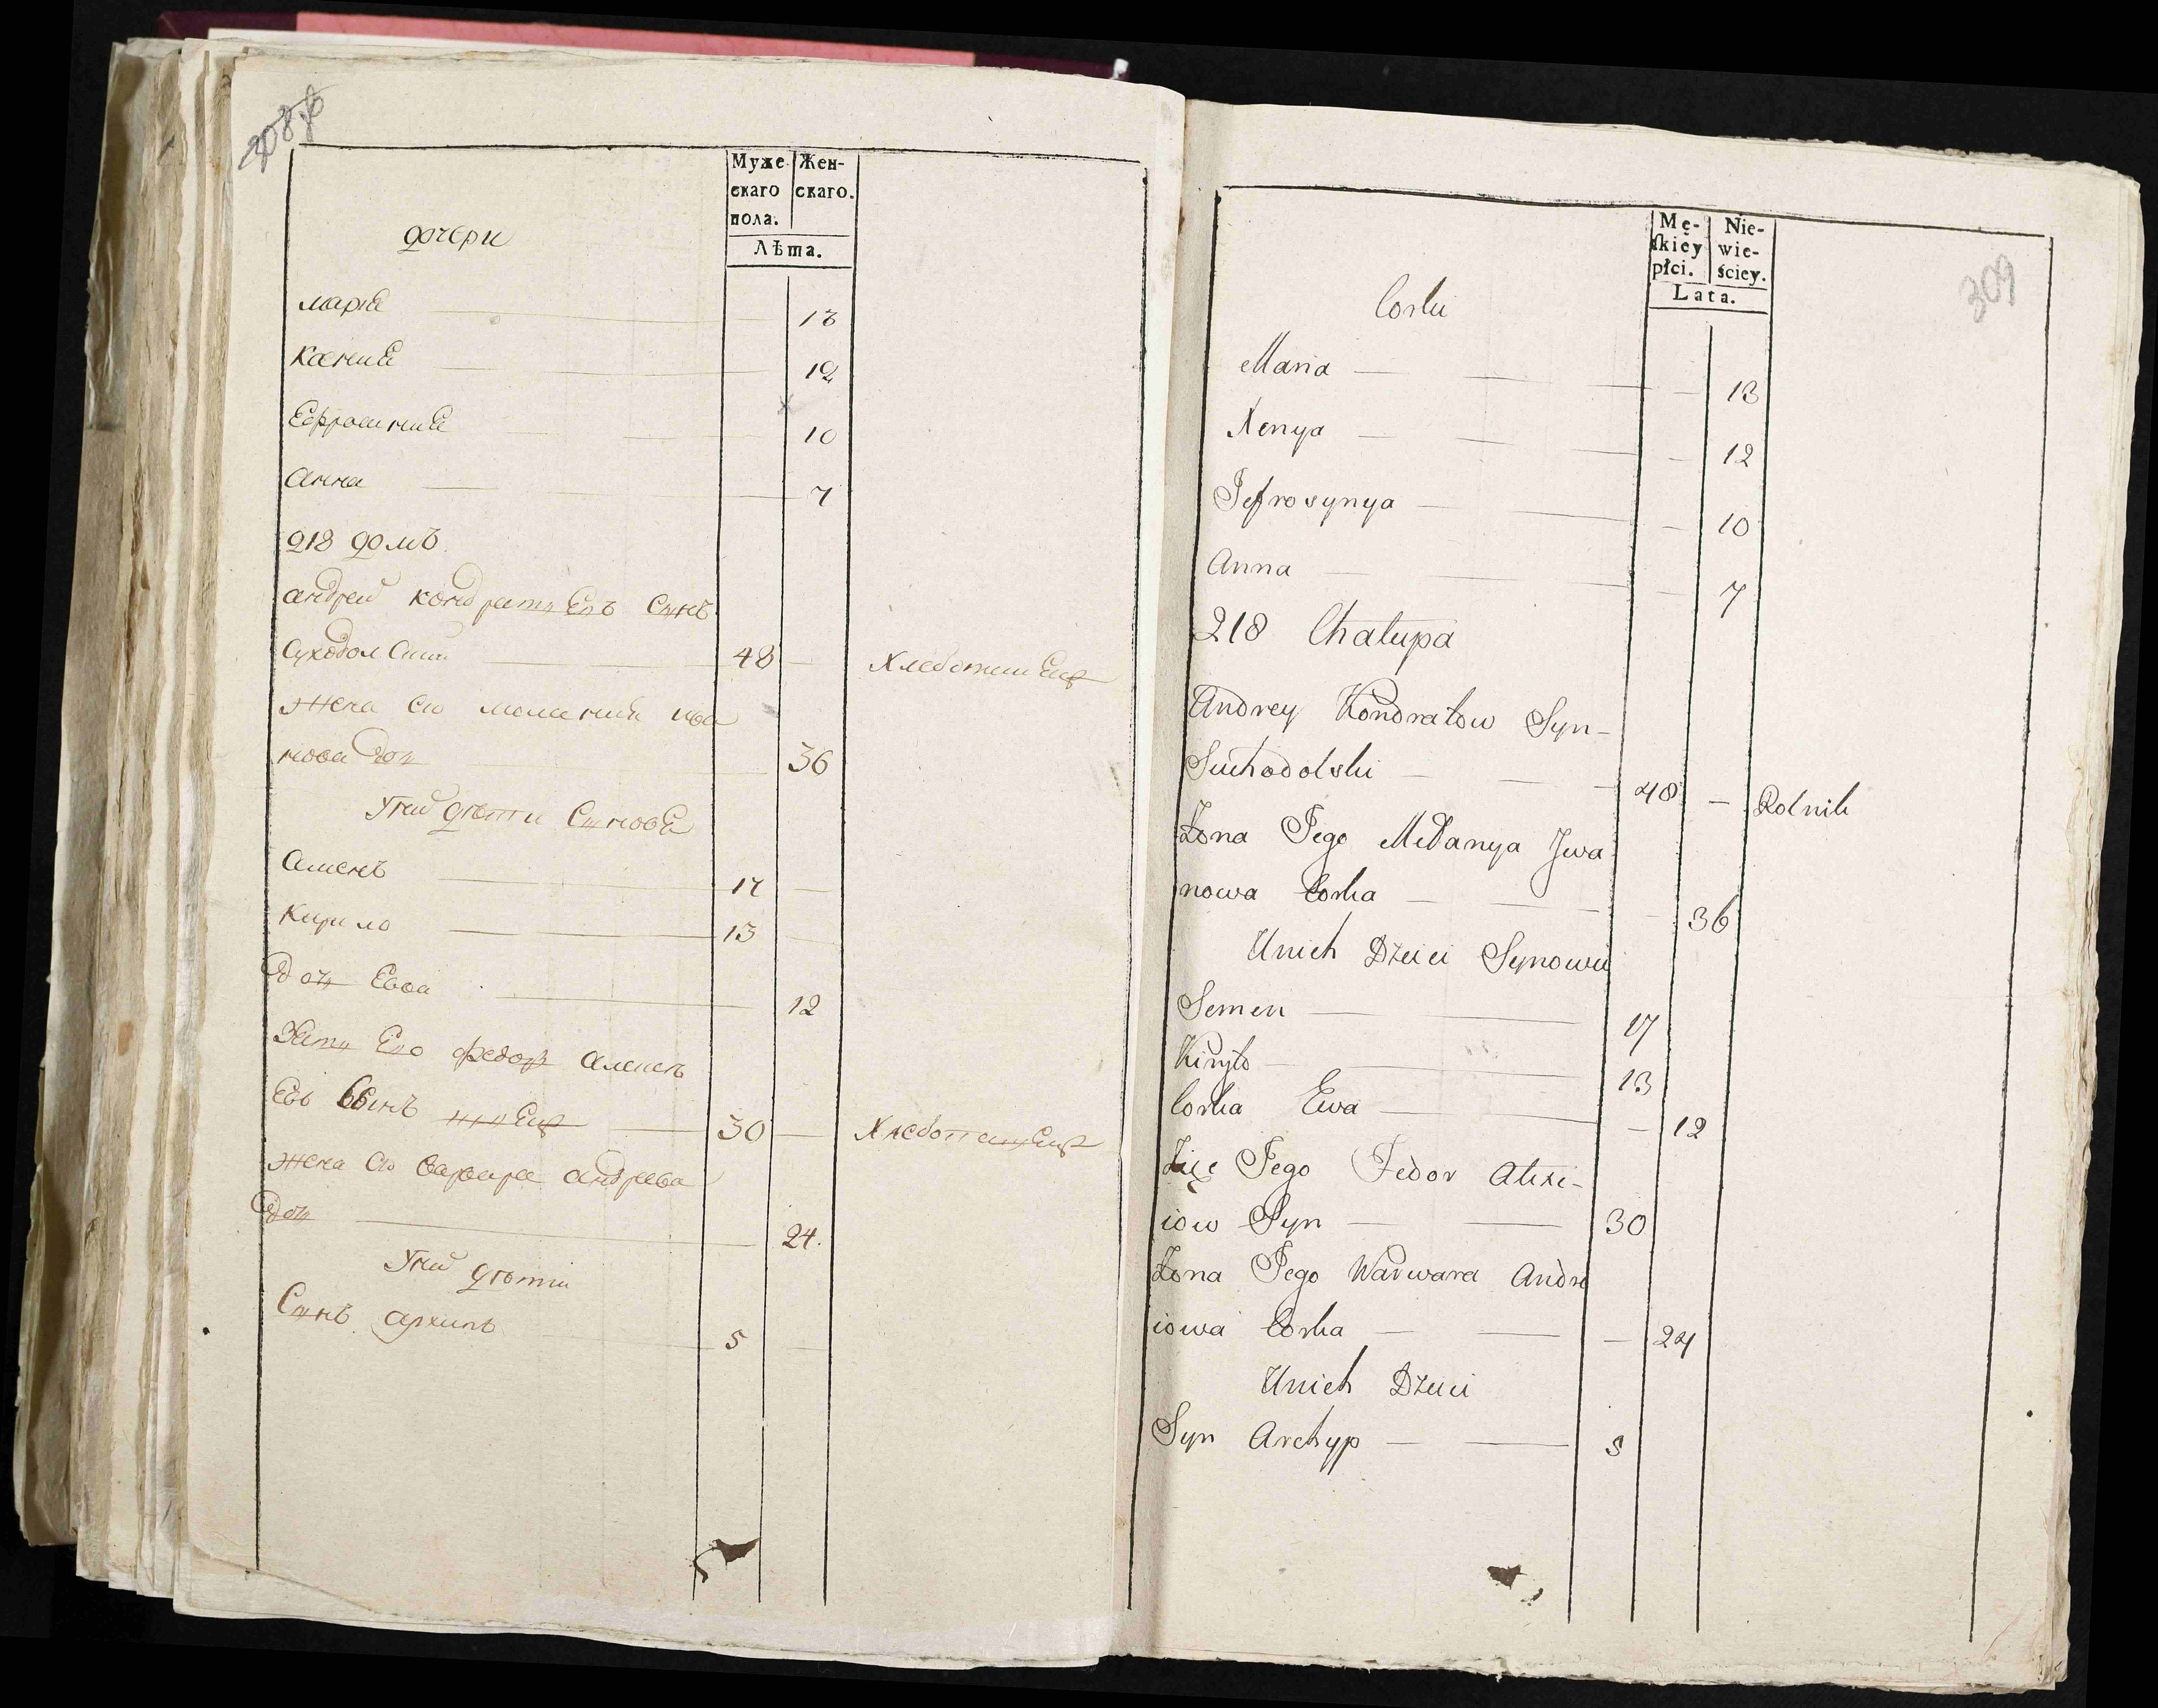 308об
Муже
скаго
пола.
Жен-
скаго.
Лѣта.
дочери
марiя 13
ксения 12
Ефросиния 10
анна 7
218 домъ
андрей кондратиевъ Сынъ
Суходолский 48 — Хлебопашец
жена его мелания ива
нова доч 36
У них дѣти Сыновя
Семенъ 17 —
Кирило 13 —
доч Евва 12
Зять Его федор алексѣ
Евъ Сынъ 30 — Хлебопашец
жена его варвара андреева
доч 24.
У них дѣти
Сынъ архипъ 5 —
309
Mę-
skiey
płci.
Nie-
wie-
ściey.
Lata.
Corki
Maria — — — — 13
Xenya — — — — 12
Jefrosynya — — — 10
Anna — — — — 7
218 Chałupa
Andrey Kondratow Syn-
Suchodolski — — — 48 — Rolnik
Żona Jego Mełanya Jwa
nowa Corka — — — 36
Unich Dzieci Synowie
Semen — — 17
Kiryło — — 13
Corka Ewa — — — 12
Zięć Jego Fedor Alexi-
iow Syn — — 30
Żona Jego Warwara Andre
iowa Corka — — — 24
Unich Dzieci
Syn Archyp — — 5